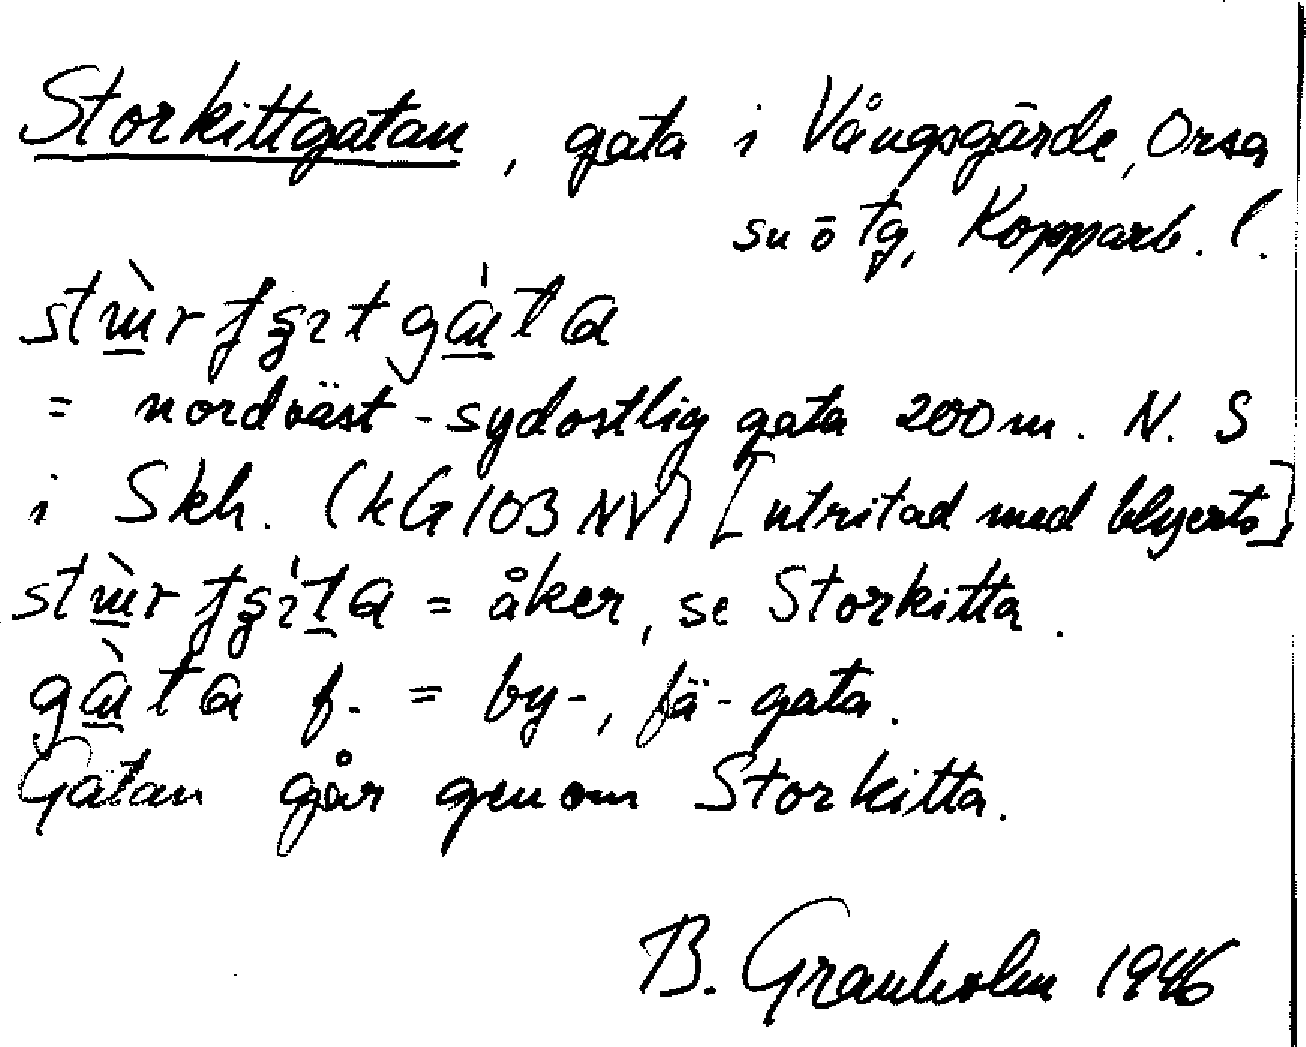 Storkittgatan, gata i Vångsgärde, Orsa
sn ö tg, Kopparb. l.
= nordväst-sydostlig gata 200 m. N. S
i Skh. (kG 103 NV) [utritad med blyerts]
= åker, se Storkitta.
f. = by-, fä-gata.
Gatan går genom Storkitta.
B. Granholm 1946